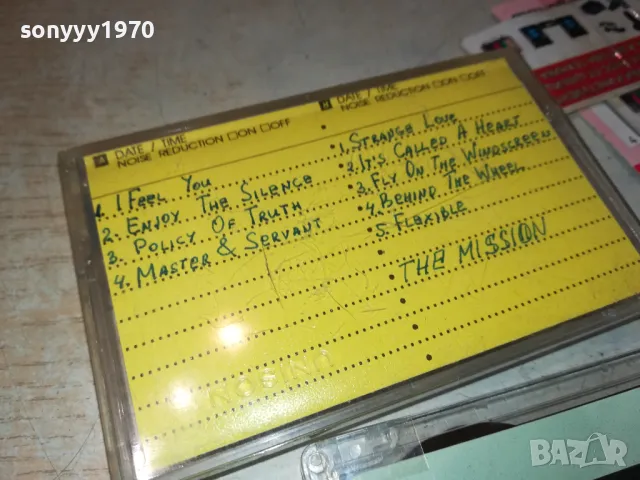 sonyyy1970
A DATE / TIME
NOISE REDUCTION □ON □OFF
1. I FEEL YOU
2. ENJOY THE SILENCE
3. POLICY OF TRUTH
4. MASTER & SERVANT
B DATE / TIME
NOISE REDUCTION □ON □OFF
1. STRANGE LOVE
2. IT'S CALLED A HEART
3. FLY ON THE WINDSCREEN
4. BEHIND THE WHEEL
5. FLEXIBLE
THE MISSION
BAZAR